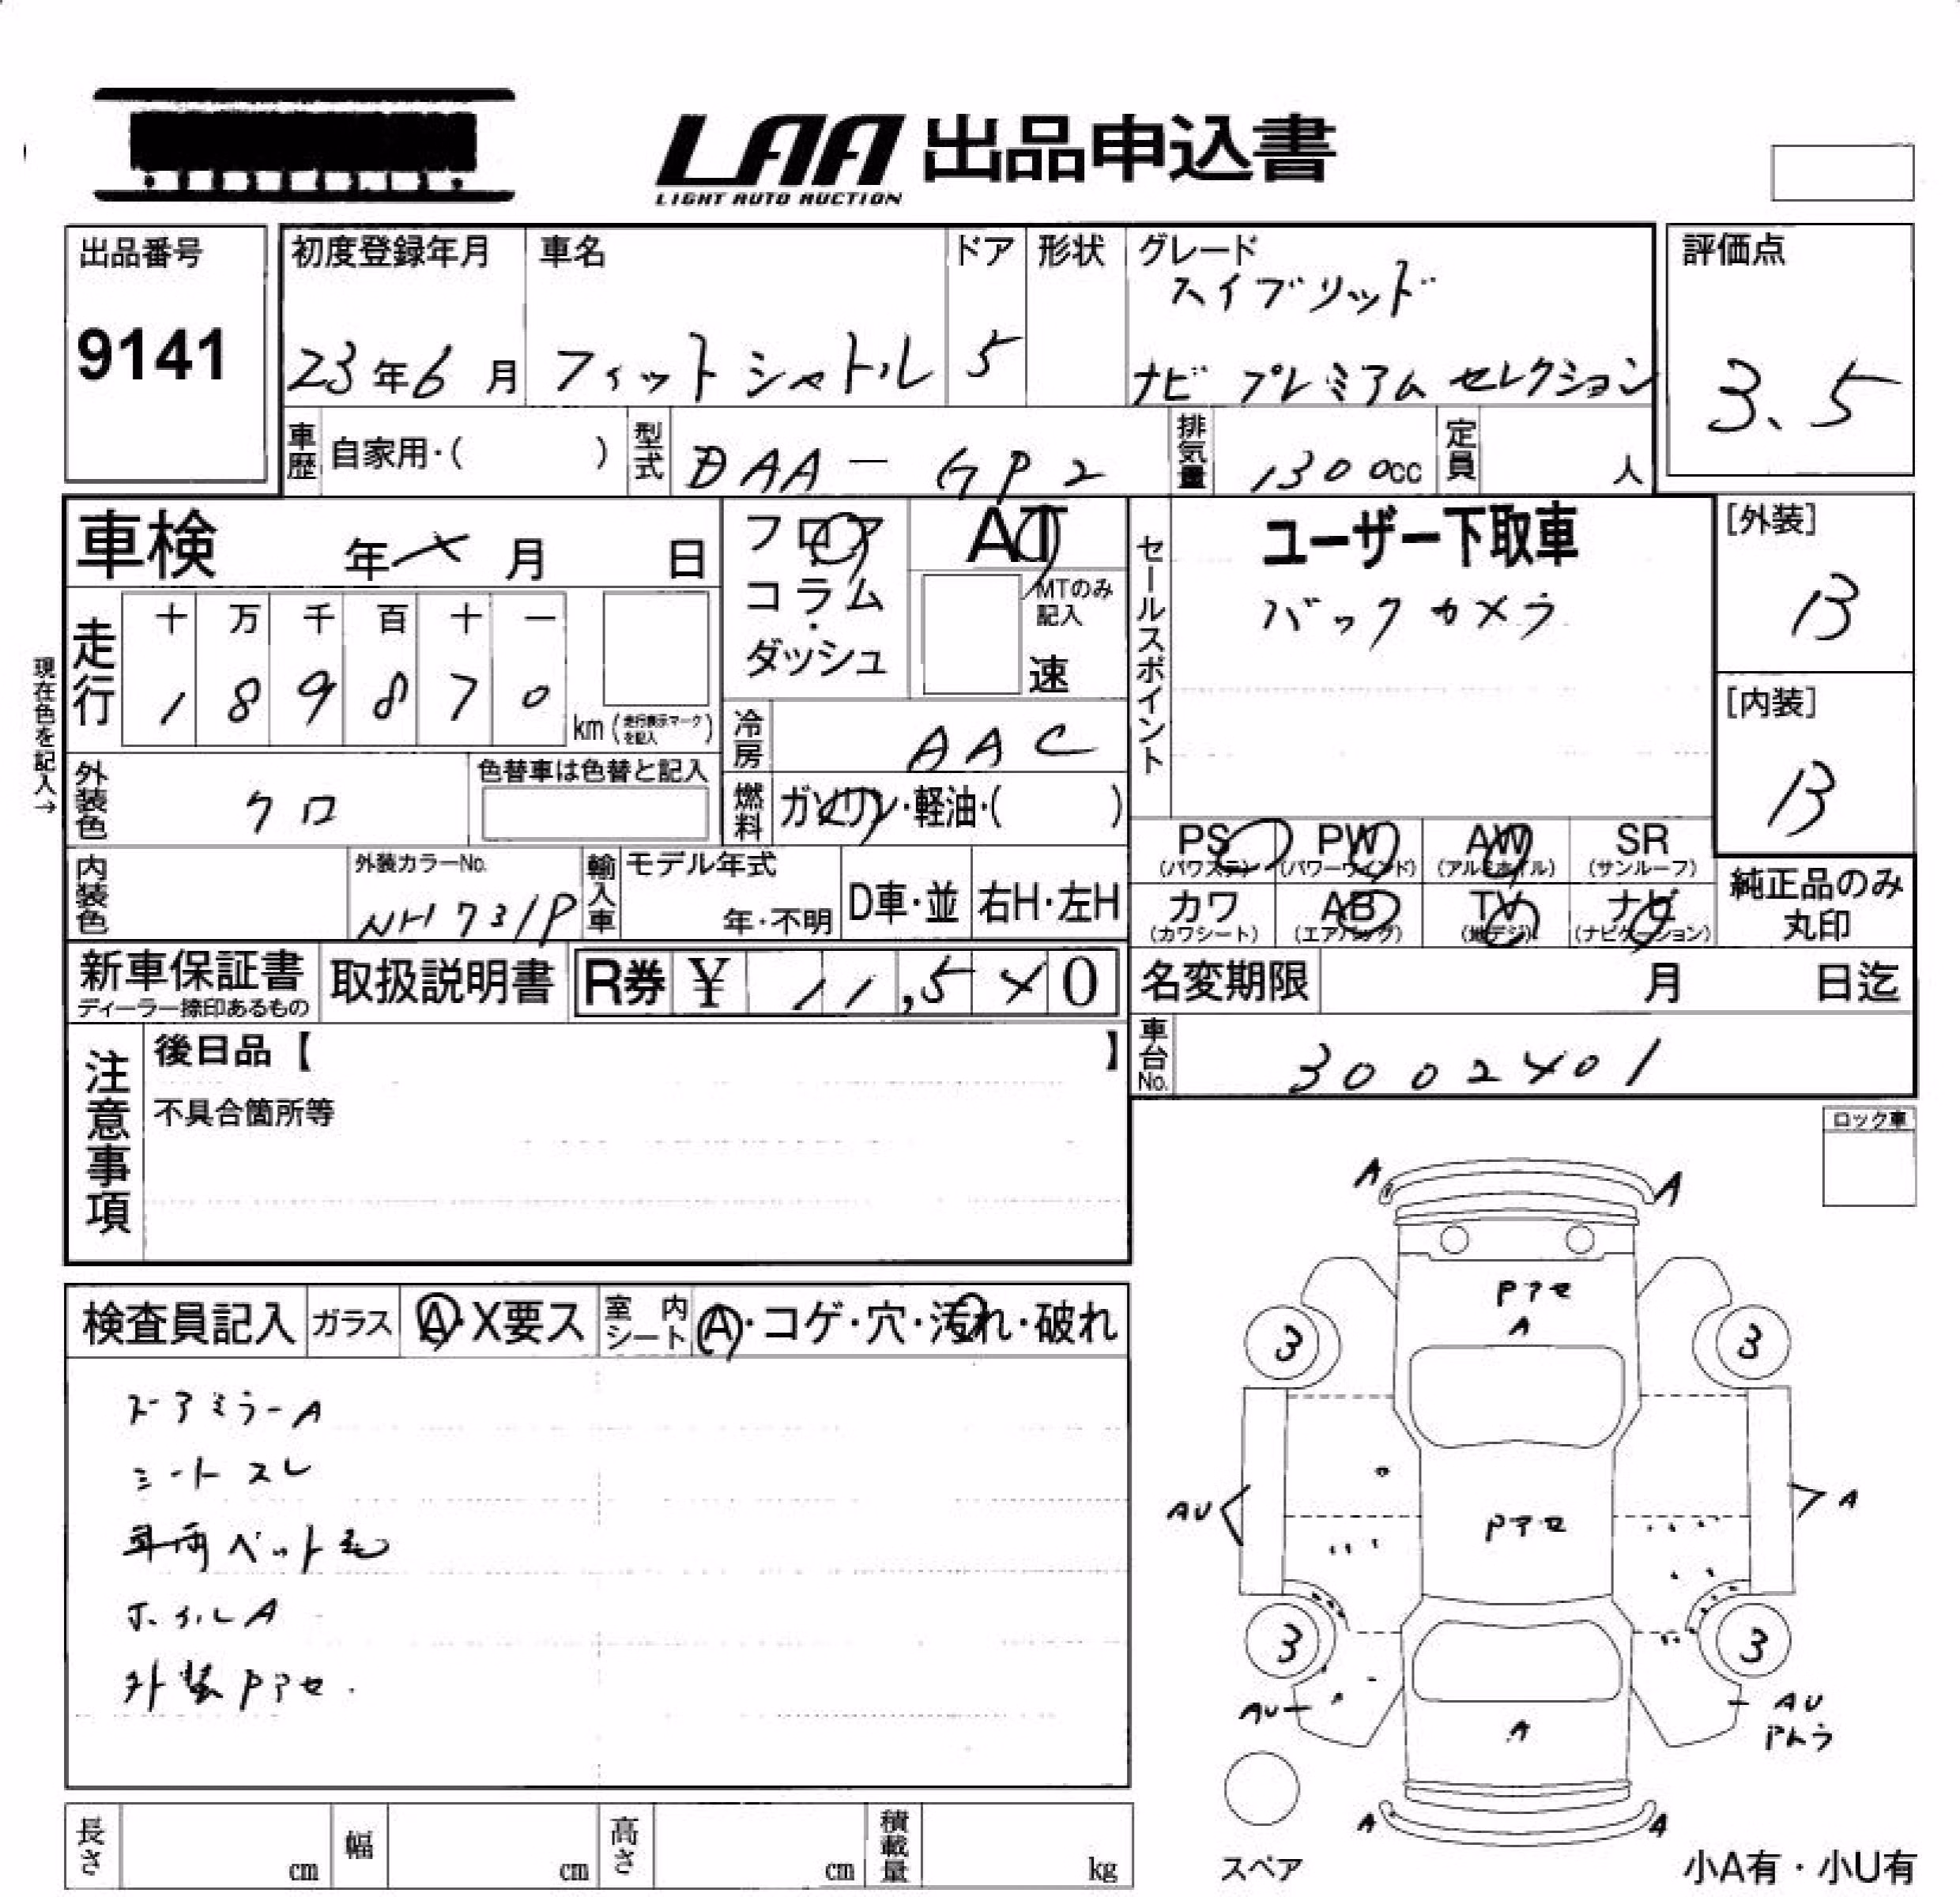 LAA 出品申込書
LIGHT AUTO AUCTION
出品番号
9141
初度登録年月
23年6月
車名
フィットシャトル
ドア
5
形状
グレード
ハイブリッド
ナビ プレミアム セレクション
評価点
3.5
車歴
自家用・( )
型式
DAA-GP2
排気量
1300cc
定員
人
車検
年 × 月 日
フロア
コラム
・
ダッシュ
AT
MTのみ
記入
速
セールスポイント
ユーザー下取車
バックカメラ
[外装]
B
[内装]
B
現在色を記入→
走行
十 万 千 百 十 一
1 8 9 8 7 0
km (走行表示マークを記入)
冷房
AAC
外装色
クロ
色替車は色替と記入
燃料
ガソリン・軽油・( )
PS
(パワステ)
PW
(パワーウインド)
AW
(アルミホイル)
SR
(サンルーフ)
カワ
(カワシート)
AB
(エアバッグ)
TV
(地デジ)
ナビ
(ナビゲーション)
純正品のみ
丸印
内装色
外装カラーNo.
NH731P
輸入車
モデル年式
年・不明
D車・並
右H・左H
新車保証書
ディーラー捺印あるもの
取扱説明書
R券 ¥ 11,540
名変期限
月 日迄
車台No.
3002401
注意事項
後日品【 】
不具合箇所等
ロック車
検査員記入
ガラス
A・X要ス
室内シート
A・コゲ・穴・汚れ・破れ
ドアミラーA
シートスレ
車両ペット毛
ホイルA
外装Pアセ.
A
A
Pアセ
A
3
3
AU
A
Pアセ
3
3
AU
AU
A
A
A
スペア
小A有・小U有
長さ
cm
幅
cm
高さ
cm
積載量
kg